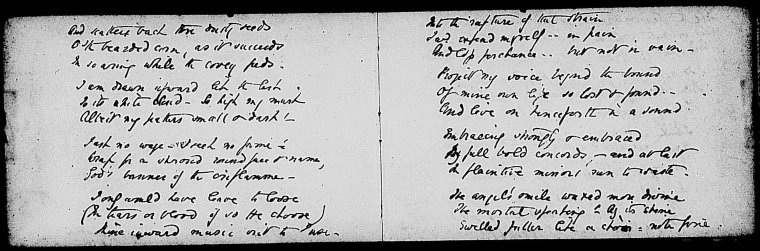 And scatters back the dusty seeds
O the bearded corn, as it succeeds
In soaring while the covey feeds.
I am drawn upward at the last
To its white cloud - So high my mark
Albeit my nature small & dark!
I ask no wage - I seek no fame -
for a shroud round face & name,
God's banner of the oriflamme -
I only would have leave to loose
(In tears or blood if so He choose)
Mine inward music out to use -
Into the rapture of that strain
I'd expend myself - - in pain
And loss perchance - - but not in vain -
Project my voice beyond the bound
Of mine own life so lost & found - -
And live on henceforth in a sound
Embracing strongly & embraced
By full bold concords, - and at last
In plaintive minors run to waste.
The angel's smile waxed more divine
The mortal
Swelled fuller like a choir